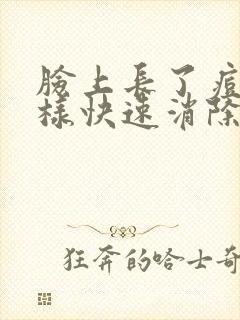 臉上長了痘
樣快速消除
狂奔的哈士奇